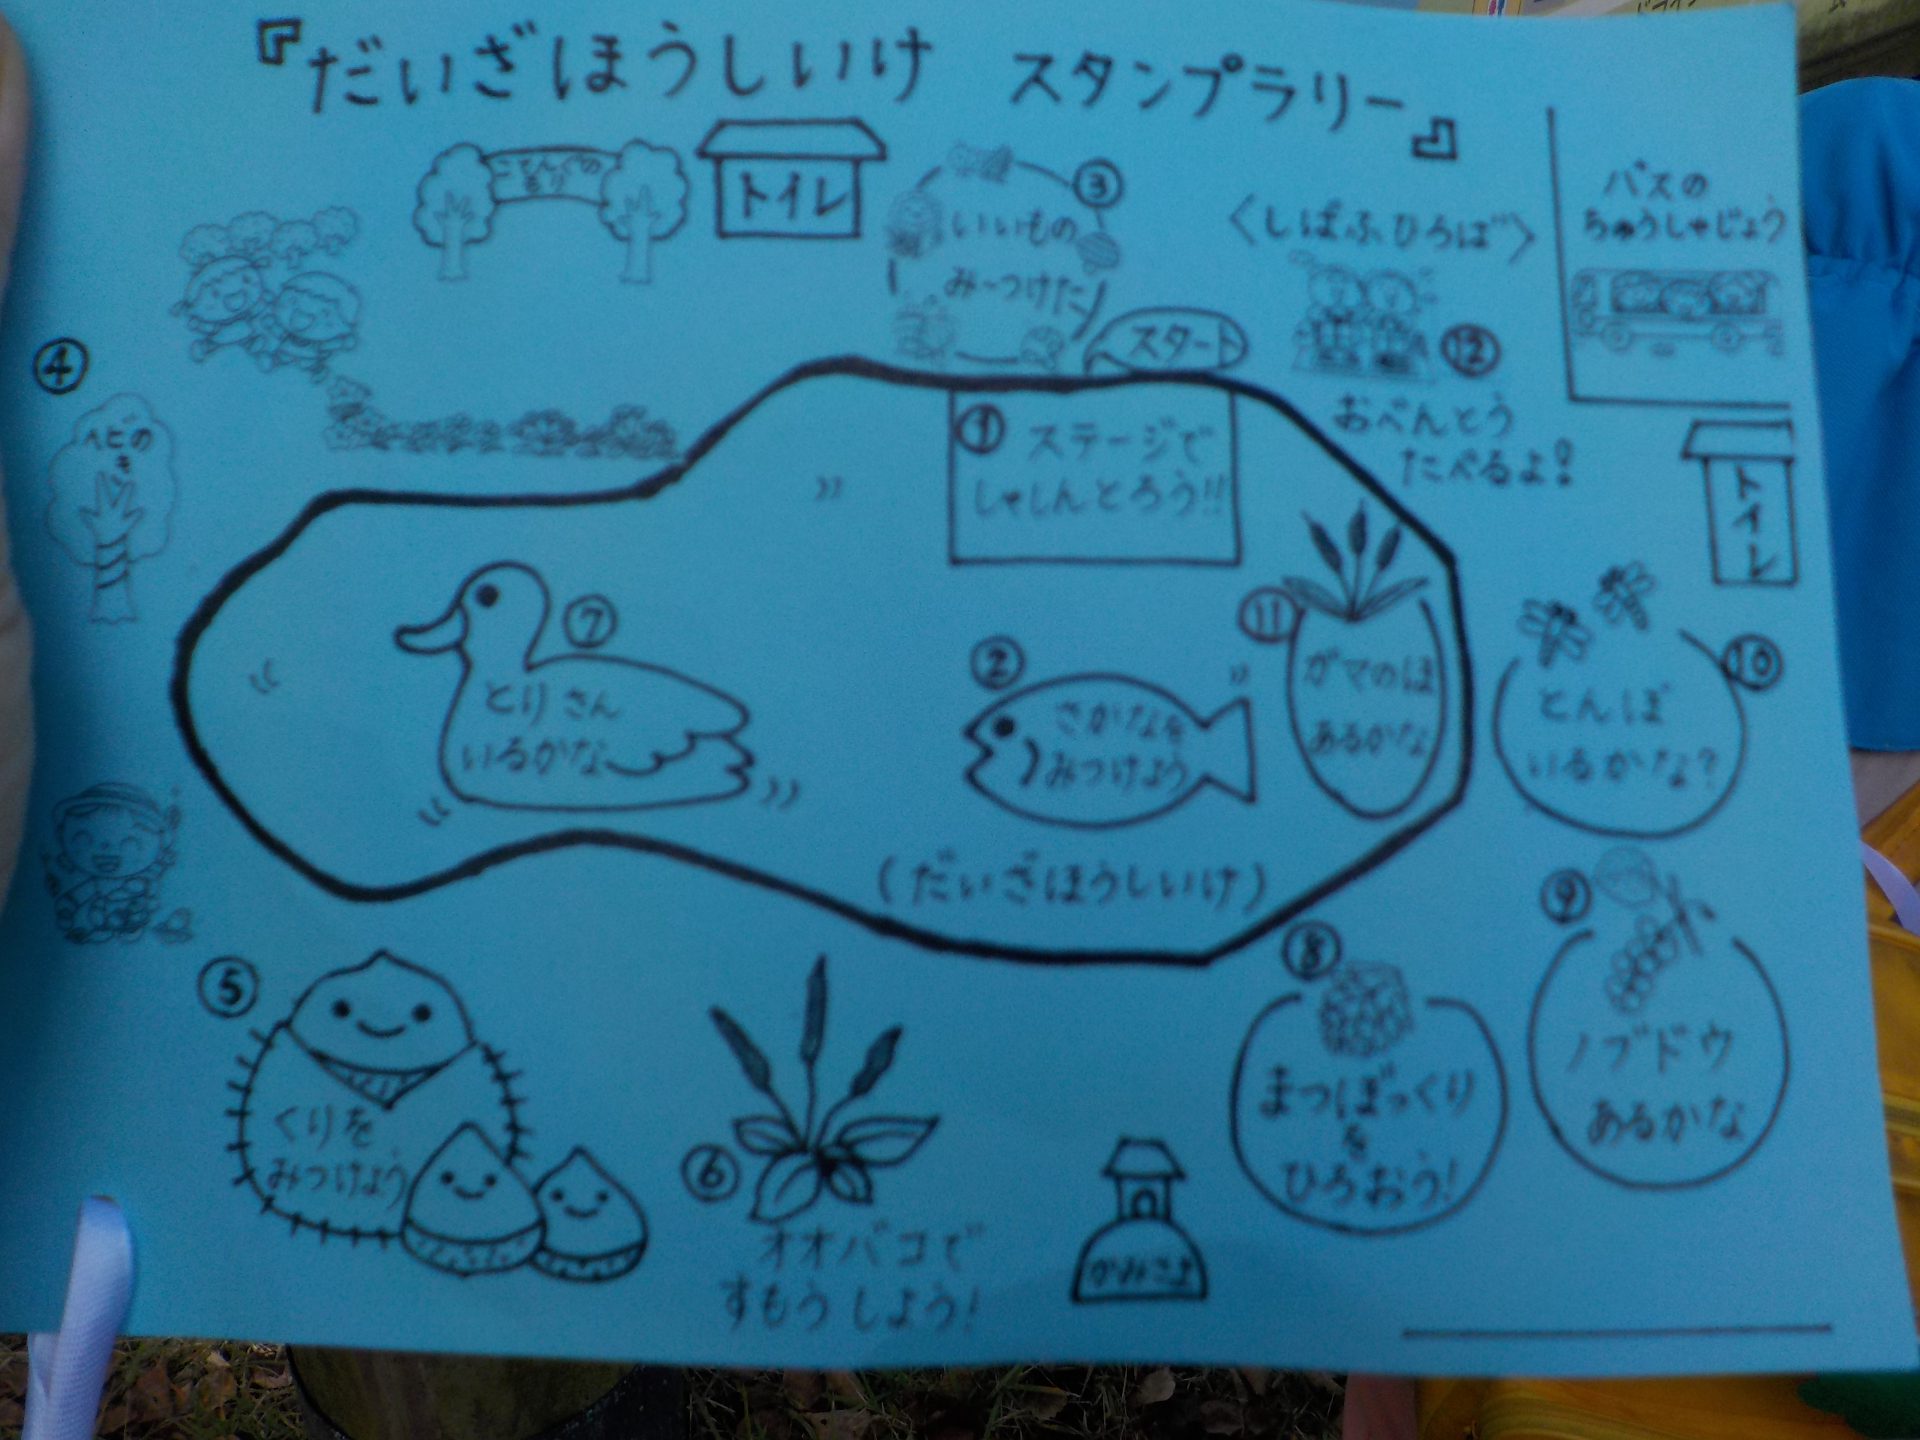 『だいざほうしいけ スタンプラリー』
こてんぐの
もり
トイレ
③
いいもの
み〜つけた
〈しばふひろば〉
バスの
ちゅうしゃじょう
スタート
⑫
おべんとう
たべるよ!
トイレ
④
ヘビの
き
①ステージで
しゃしんとろう!!
⑦
とりさん
いるかな
②
さかなを
みつけよう
⑪
ガマのほ
あるかな
⑩
とんぼ
いるかな?
(だいざほうしいけ)
⑤
くりを
みつけよう
⑥
オオバコで
すもうしよう!
かみさま
⑧
まつぼっくり
を
ひろおう!
⑨
ノブドウ
あるかな